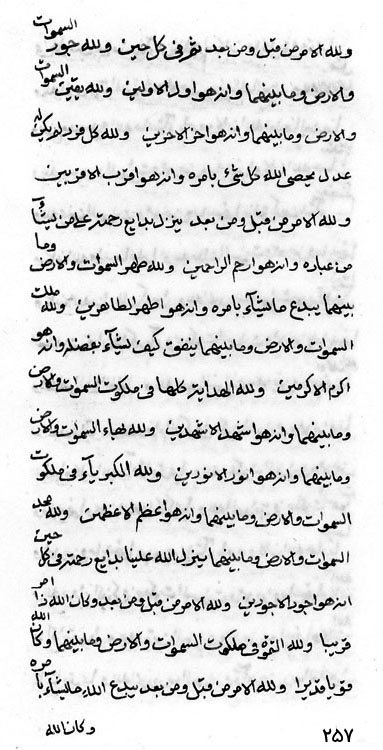 ولله الامر من قبل ومن بعد ثم في كل حين ولله جود السموات
والارض وما بينهما وانه هو اول الاولين ولله يقين السموات
والارض وما بينهما وانه هو اخر الاخرين ولله كل فرد لم يكن له
عدل يحصي الله كل شئ بامره وانه هو اقرب الاقربين
ولله الامر من قبل ومن بعد ينزل بدايع رحمته على من يشآء
من عباده وانه هو ارحم الراحمين ولله طهر السموات والارض وما
بينهما يبدع ما يشآء بامره وانه هو اطهر الطاهرين ولله ملك
السموات والارض وما بينهما ينفق كيف يشآء بفضله وانه هو
اكرم الاكرمين ولله الهداية كلها في ملكوت السموات والارض
وما بينهما وانه هو اشهد الاشهدين ولله بهاء السموات والارض
وما بينهما وانه هو انور الانورين ولله الكبريآء في ملكوت
السموات والارض وما بينهما وانه هو اعظم الاعظمين ولله مجد
السموات والارض وما بينهما ينزل الله علينا بدايع رحمته في كل حين
انه هو اجود الاجودين ولله الامر من قبل ومن بعد وكان الله ذا امر
قريبا ولله القوة في ملكوت السموات والارض وما بينهما وكان الله
قويا قديرا ولله الامر من قبل ومن بعد يبدع الله ما يشآء بامره
وكان الله
٢٥٧